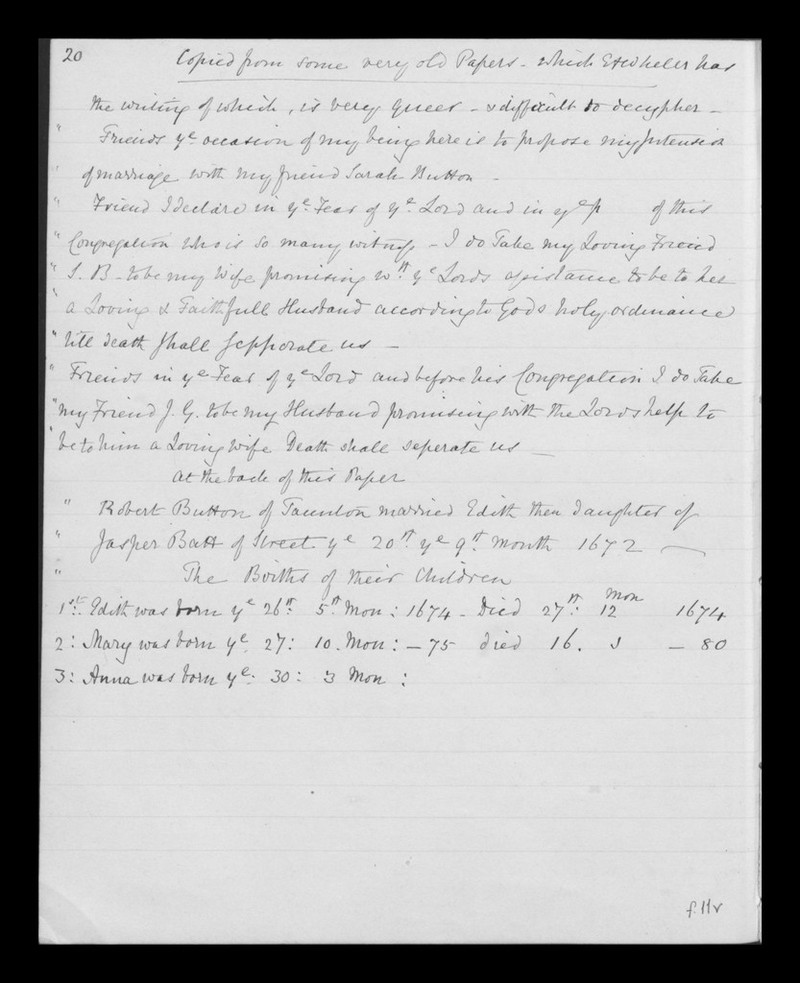 20
Copied from some very old Papers - which E Wheeler has
the writing of which, is very queer - & difficult to decypher -
" Friends ye occasion of my being here is to propose my Intension
" of marriage with my friend Sarah Button -
" Friend I declare in ye Fear of ye Lord and in ye p of this
" Congregation who is so many witness - I do Take my Loving Friend
" S. B - to be my Wife promising wth ye Lords assistance to be to her
" a Loving & Faithfull Husband according to Gods holy ordinance
" till death shall sepporate us -
" Friends in ye Fear of ye Lord and before his Congregation I do Take
" my Friend J. G. to be my Husband promising with the Lords help to
" be to him a Loving wife Death shall seperate us -
at the back of this Paper
" Robert Button of Taunton married Edith then daughter of
" Jasper Batt of Street ye 20th ye 9th Month 1672 -
" The Births of their Children
1st: Edith was born ye 26th 5th Mon: 1674 - Died 27th: 12 Mon 1674
2: Mary was born ye 27: 10. Mon: - 75 died 16. - 80
3: Anna was born ye 30: 3 Mon:
f.11v